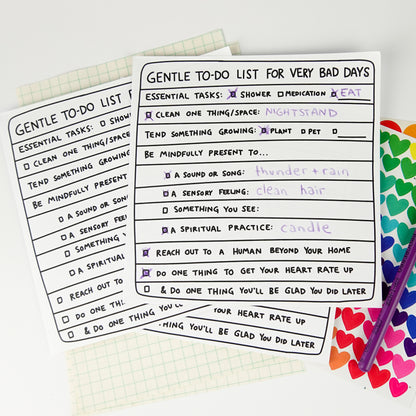 GENTLE TO-DO LIST FOR VERY BAD DAYS
ESSENTIAL TASKS: SHOWER MEDICATION EAT
CLEAN ONE THING/SPACE: NIGHTSTAND
TEND SOMETHING GROWING: PLANT PET
BE MINDFULLY PRESENT TO...
A SOUND OR SONG: thunder + rain
A SENSORY FEELING: clean hair
SOMETHING YOU SEE:
A SPIRITUAL PRACTICE: candle
REACH OUT TO A HUMAN BEYOND YOUR HOME
DO ONE THING TO GET YOUR HEART RATE UP
& DO ONE THING YOU'LL BE GLAD YOU DID LATER
GENTLE TO-DO LIST
ESSENTIAL TASKS: SHOW
CLEAN ONE THING/SPACE
TEND SOMETHING GROWING
BE MINDFULLY PRESENT
A SOUND OR SO
A SENSORY FEEL
SOMETHING YO
A SPIRITUAL
REACH OUT TO
DO ONE THING YOUR HEART RATE UP
& DO ONE THING YOU'LL BE GLAD YOU DID LATER